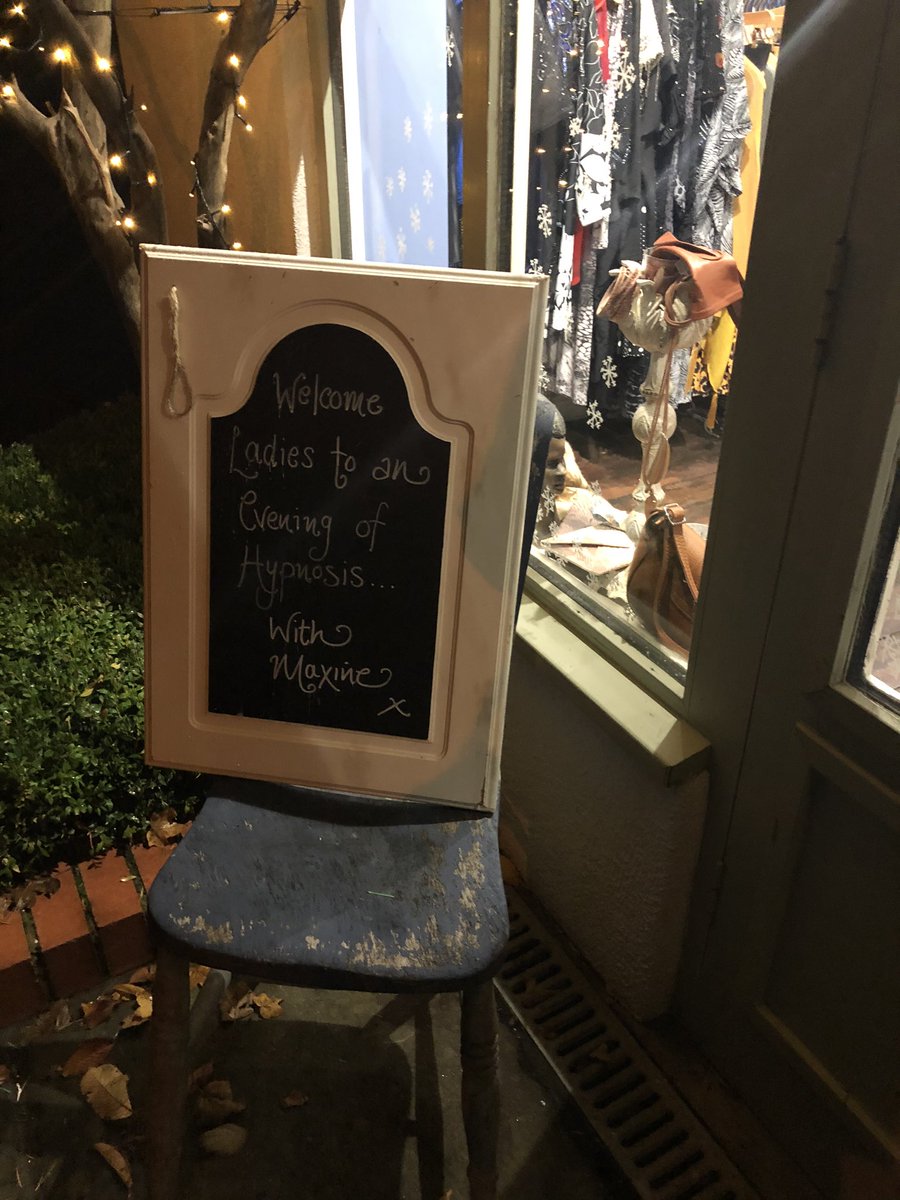 Welcome
Ladies to an
Evening of
Hypnosis...
With
Maxine
x